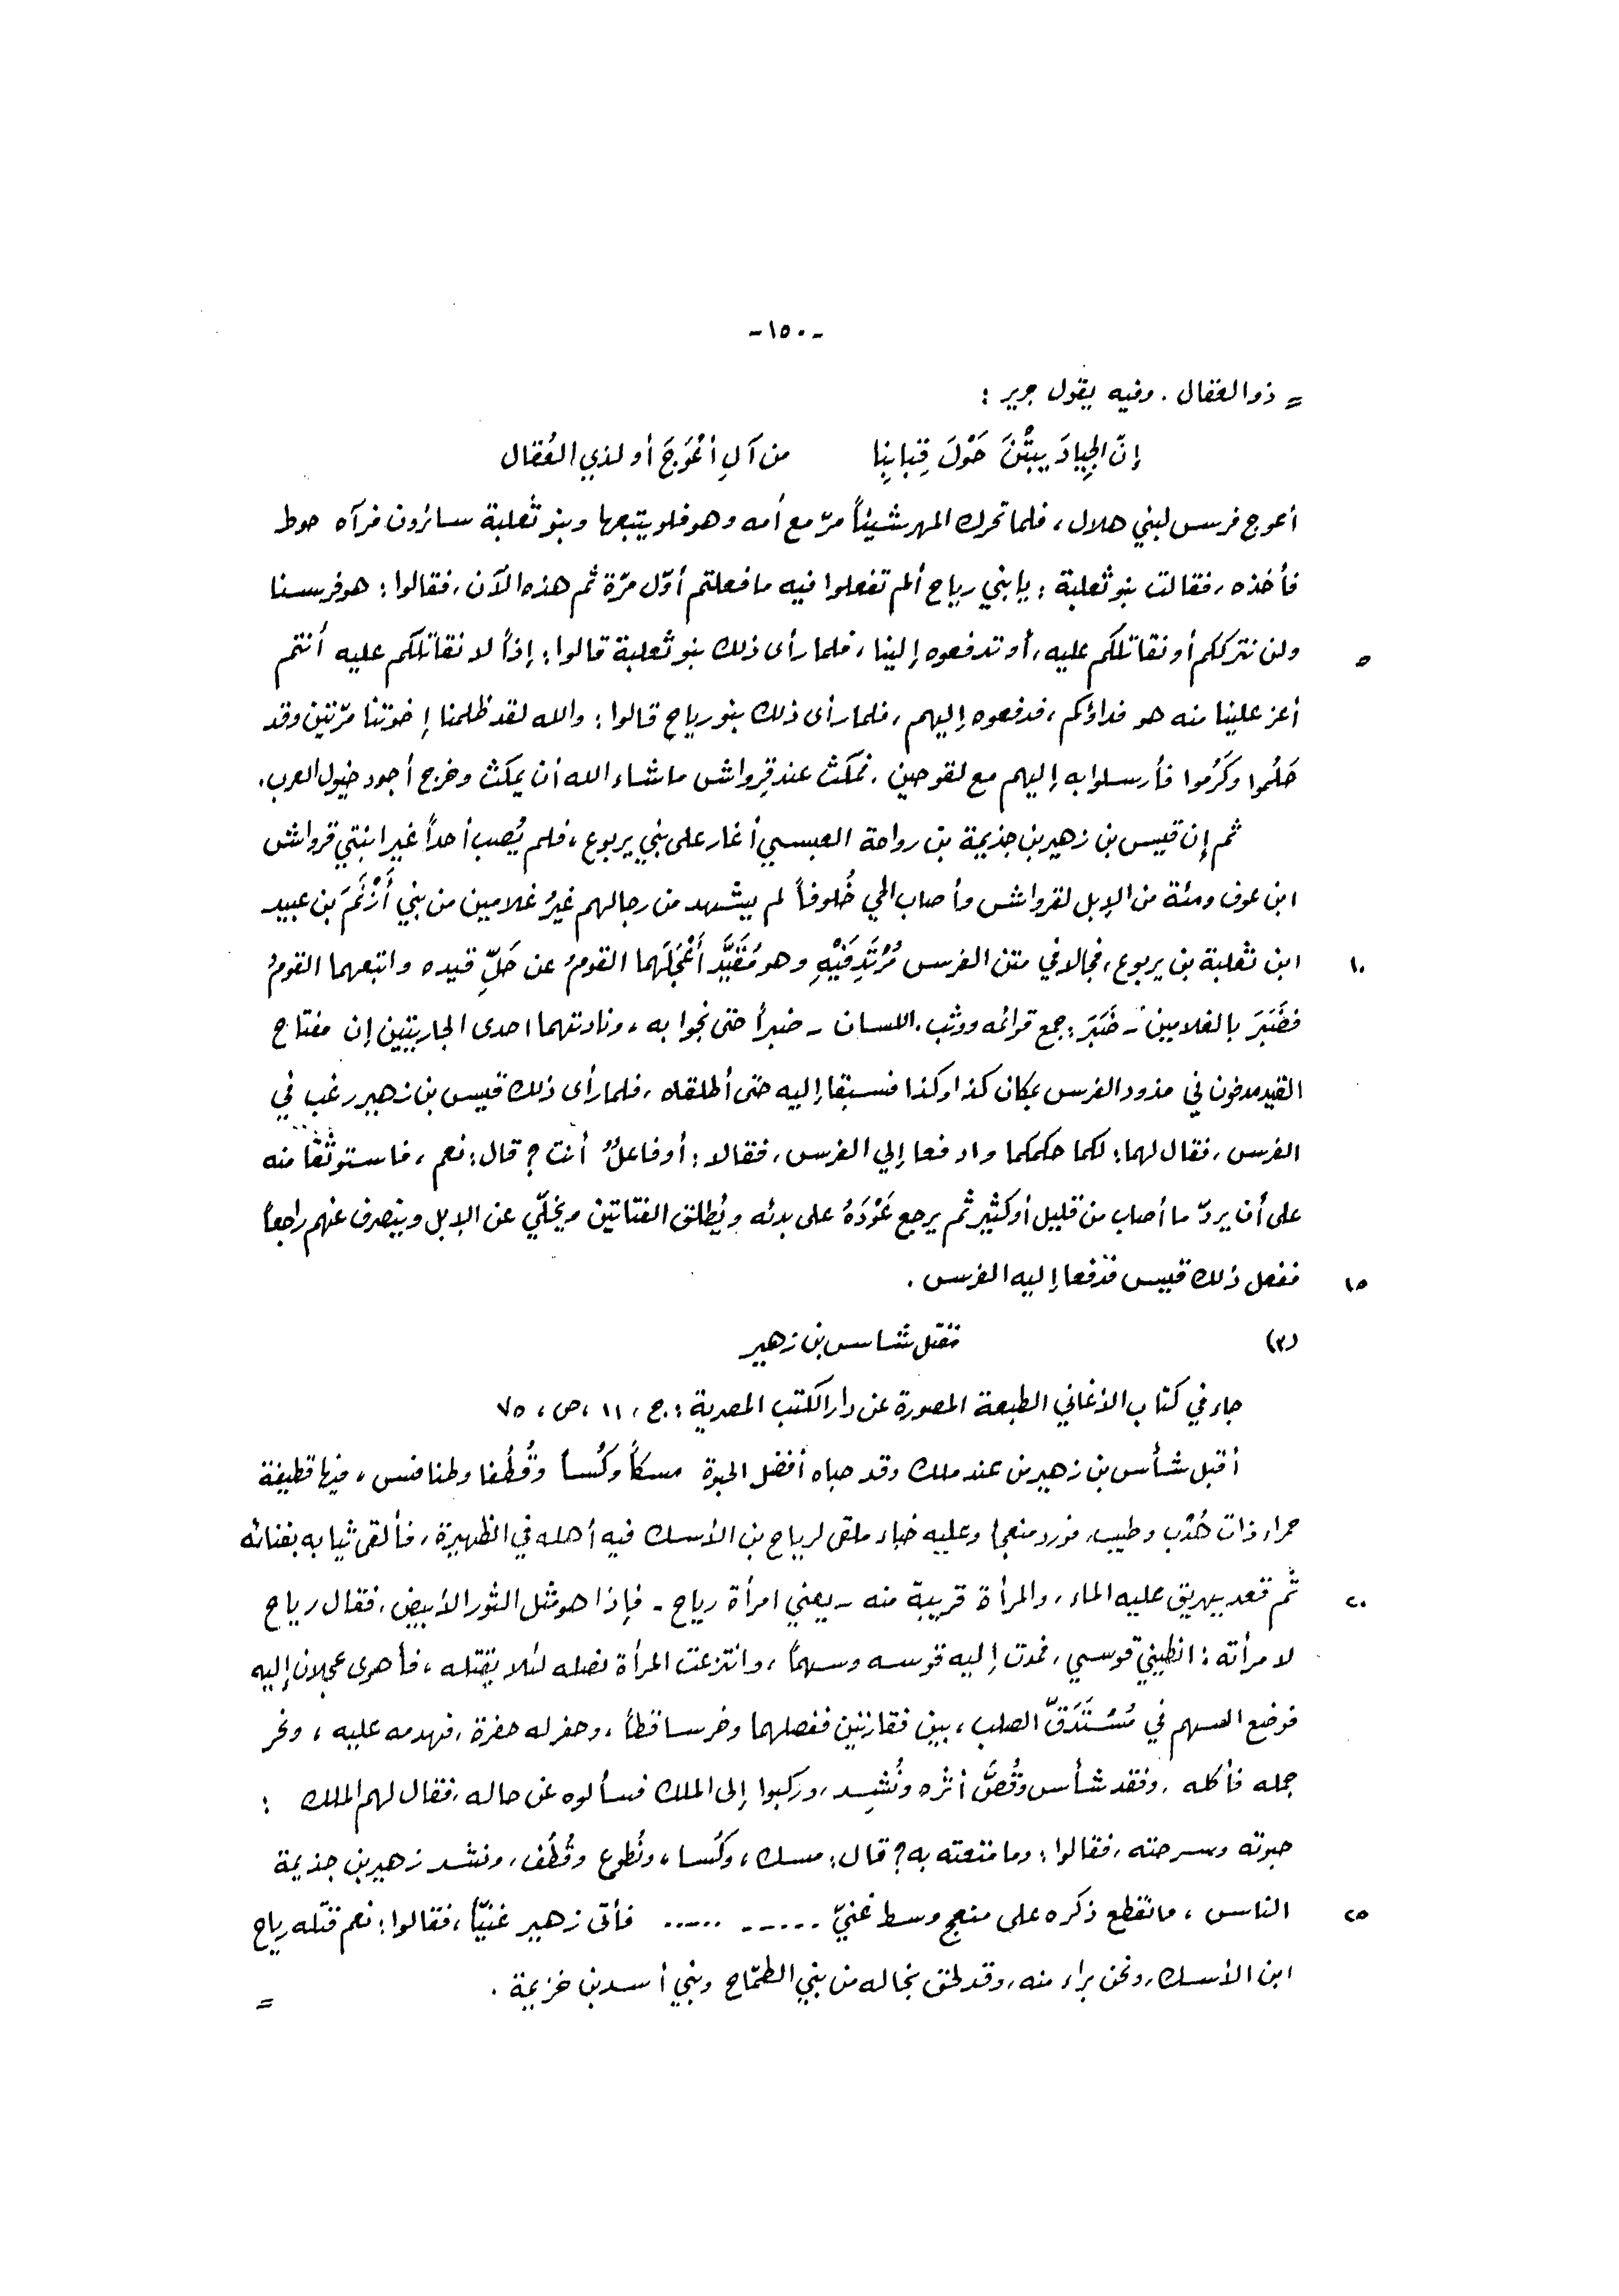 -١٥٠-
= ذو العقال . وفيه يقول جرير :
إنّ الجِيادَ يبِتْنَ حَوْلَ قِبابِنا من آلِ أعْوَجَ أو لذي العُقال
أعوج فرس لبني هلال ، فلما تحرك المهر شيئاً مرّ مع أمه وهو فلو يتبعها وبنو ثعلبة سائرون فرآه حوط
فأخذه ، فقالت بنو ثعلبة : يا بني رياح ألم تفعلوا فيه ما فعلتم أوّل مرّة ثم هذه الآن ، فقالوا : هو فرسنا
٥ ولن نترككم أو نقاتلكم عليه ، أو تدفعوه إلينا ، فلما رأى ذلك بنو ثعلبة قالوا : إذاً لا نقاتلكم عليه أنتم
أعز علينا منه هو فداؤكم ، فدفعوه إليهم ، فلما رأى ذلك بنو رياح قالوا : والله لقد ظلمنا إخوتنا مرّتين وقد
حَلُموا وكَرُموا فأرسلوا به إليهم مع لقوحين . فمكث عند قِرواش ما شاء الله أن يمكث وخرج أجود خيول العرب .
ثم إن قيس بن زهير بن جذيمة بن رواحة العبسي أغار على بني يربوع ، فلم يُصب أحداً غير ابنتي قرواش
ابن عوف ومئة من الإبل لقرواش وأصاب الحي خُلوفاً لم يشهد من رجالهم غيرُ غلامين من بني أَزْنَمَ بن عبيد
١٠ ابن ثعلبة بن يربوع ، فجالا في متن الفرس مُرْتَدِفَيْهِ وهو مُقَيَّد أَعْجَلَهما القومُ عن حَلِّ قيده واتبعهما القومُ
فضَبَرَ بالغلامين - ضَبَرَ : جمع قوائمه ووثب . اللسان - ضبراً حتى نجوا به ، ونادتهما احدى الجاريتين إن مفتاح
القيد مدفون في مذود الفرس بمكان كذا وكذا فسبقا إليه حتى أطلقاه ، فلما رأى ذلك قيس بن زهير رغب في
الفرس ، فقال لهما : لكما حكمكما وادفعا إلي الفرس ، فقالا : أوفاعلٌ أنت ؟ قال : نعم ، فاستوثقا منه
على أن يردّ ما أصاب من قليل أو كثير ثم يرجع عَوْدَهُ على بدئه ويُطلق الفتاتين ويخلّي عن الإبل وينصرف عنهم راجعاً
١٥ ففعل ذلك قيس فدفعا إليه الفرس .
(٢) مقتل شاس بن زهير
جاء في كتاب الأغاني الطبعة المصورة عن دار الكتب المصرية : ج ، ١١ ، ص ، ٧٥
أقبل شأس بن زهير من عند ملك وقد حباه أفضل الحبوة مسكاً وكُساً وقُطُفا وطنافس ، فيها قطيفة
حمراء ذات هُدْب وطيب . فورد منعجا وعليه خباء ملقى لرياح بن الأسك فيه أهله في الظهيرة ، فألقى ثيابه بفنائه
٢٠ ثم قعد يهريق عليه الماء ، والمرأة قريبة منه - يعني امرأة رياح - فإذا هو مثل الثور الأبيض ، فقال رياح
لامرأته : انطيني قوسي ، فمدت إليه قوسه وسهماً ، وانتزعت المرأة نصله لئلا يقتله ، فأهوى عجلان إليه
فوضع السهم في مُسْتَدَقّ الصلب ، بين فقارتين ففصلهما وخر ساقطاً ، وحفر له حفرة ، فهدمه عليه ، ونحر
جمله فأكله . وفقد شأس وقُصَّ أثره ونُشِد ، وركبوا إلى الملك فسألوه عن حاله ، فقال لهم الملك :
حبوته وسرحته ، فقالوا : وما متعته به ؟ قال : مسك ، وكُسا ، ونُطوع وقُطُف ، ونشد زهير بن جذيمة
٢٥ الناس ، فانقطع ذكره على منعج وسط غنيّ ...... ...... فأتى زهير غنيّاً ، فقالوا : نعم قتله رياح
ابن الأسك ، ونحن براء منه ، وقد لحق بخاله من بني الطمّاح وبني أسد بن خزيمة .
=